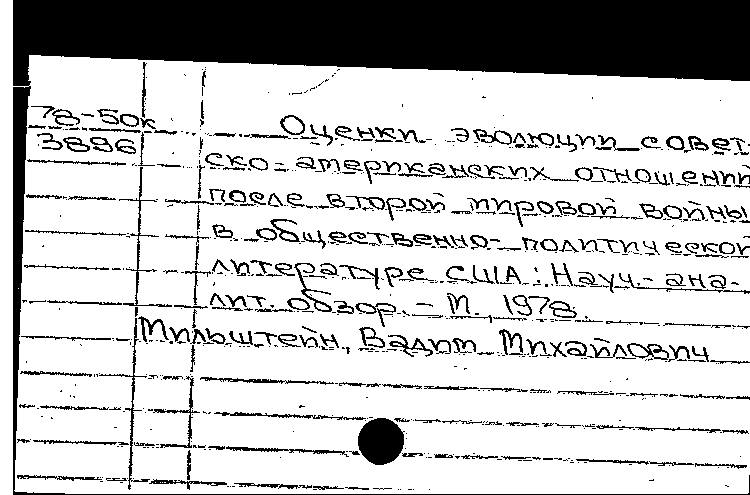 78-50к
3886
Оценки эволюции совет-
ско-американских отношений
после второй мировой войны
в общественно-политической
литературе США: Науч.-ана-
лит. обзор. – М., 1978.
Мильштейн, Вадим Михайлович